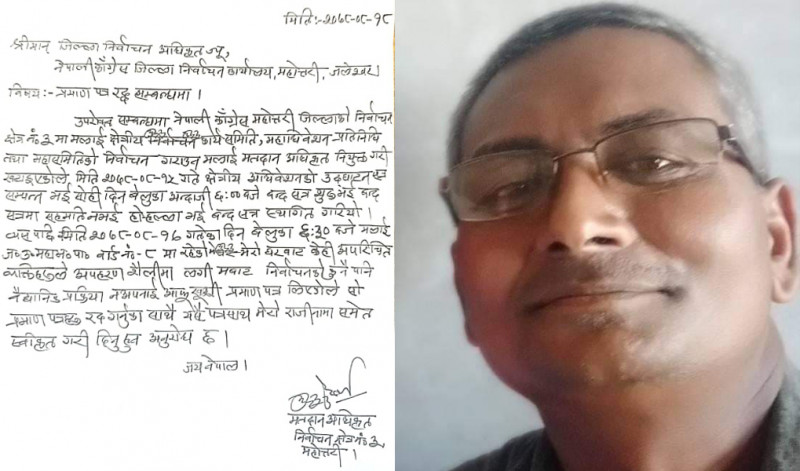 मिति:-२०७८-०८-१८
श्रीमान् जिल्ला निर्वाचन अधिकृत ज्यू,
नेपाली काँग्रेस जिल्ला निर्वाचन कार्यालय, महोत्तरी, जलेश्वर।
विषय:- प्रमाण पत्र रद्द सम्बन्धमा।
उपरोक्त सम्बन्धमा नेपाली काँग्रेस महोत्तरी जिल्लाको निर्वाचन
क्षेत्र नं ३ मा मलाई क्षेत्रीय कार्य समिति, महाधिवेशन-प्रतिनिधि
तथा महासमितिको निर्वाचन गराउन मलाई मतदान अधिकृत नियुक्त गरी
मिति २०७८-०८-१५ गते क्षेत्रीय अधिवेशनको उद्घाटन सत्र
सम्पन्न भई सोही दिन बेलुका अन्दाजी ६:०० बजे बन्द सत्र शुरु भई बन्द
सत्रमा सहमति नभई होहल्ला भई बन्द सत्र स्थगित गरियो।
त्यस पछि मिति २०७८-०८-१६ गतेका दिन बेलुका ६:३० बजे मलाई
वार्ड नं.-८ मा रहेको मेरो घरबाट केही अपरिचित
व्यक्तिहरुले अपहरण शैलीमा लगी मबाट निर्वाचनको कुनै पनि
वैधानिक प्रक्रिया नअपनाई प्रमाण पत्र लिएकोले सो
प्रमाण पत्र रद्द गर्नुका साथै यसै पत्रसाथ मेरो राजीनामा समेत
स्वीकृत गरी दिनु हुन अनुरोध छ।
जय नेपाल।
मतदान अधिकृत
निर्वाचन क्षेत्र नं ३
महोत्तरी।